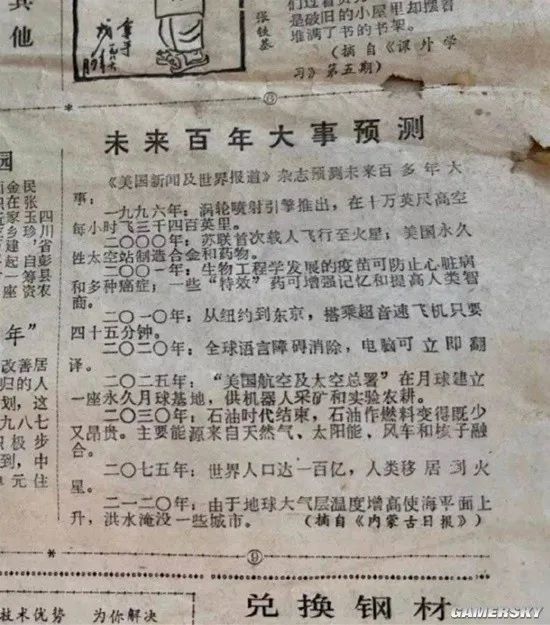 其他
张铁基
是破旧的小屋里却摆着
堆满了书的书架。
(摘自《课外学
习》第五期)
⑧
未来百年大事预测
《美国新闻及世界报道》杂志预测未来百多年大
事：
一九九六年：涡轮喷射引擎推出，在十万英尺高空
每小时飞三千四百英里。
二〇〇〇年：苏联首次载人飞行至火星；美国永久
性太空站制造合金和药物。
二〇〇一年：生物工程学发展的疫苗可防止心脏病
和多种癌症；一些“特效”药可增强记忆和提高人类智
商。
二〇一〇年：从纽约到东京，搭乘超音速飞机只要
四十五分钟。
二〇二〇年：全球语言障碍消除，电脑可立即翻
译。
二〇二五年：“美国航空及太空总署”在月球建立
一座永久月球基地，供机器人采矿和实验农耕。
二〇三〇年：石油时代结束，石油作燃料变得既少
又昂贵。主要能源来自天然气、太阳能、风车和核子融
合。
二〇七五年：世界人口达一百亿，人类移居到火
星。
二一二〇年：由于地球大气层温度增高使海平面上
升，洪水淹没一些城市。
(摘自《内蒙古日报》)
⑨
园
四川省彭县农
民张玉珍自筹资
金在家乡建起一座
年”
改善居
归的人
划，这
九八七
积极步
到，中
单元住
技术优势
为你解决
兑换钢材
GAMERSKY